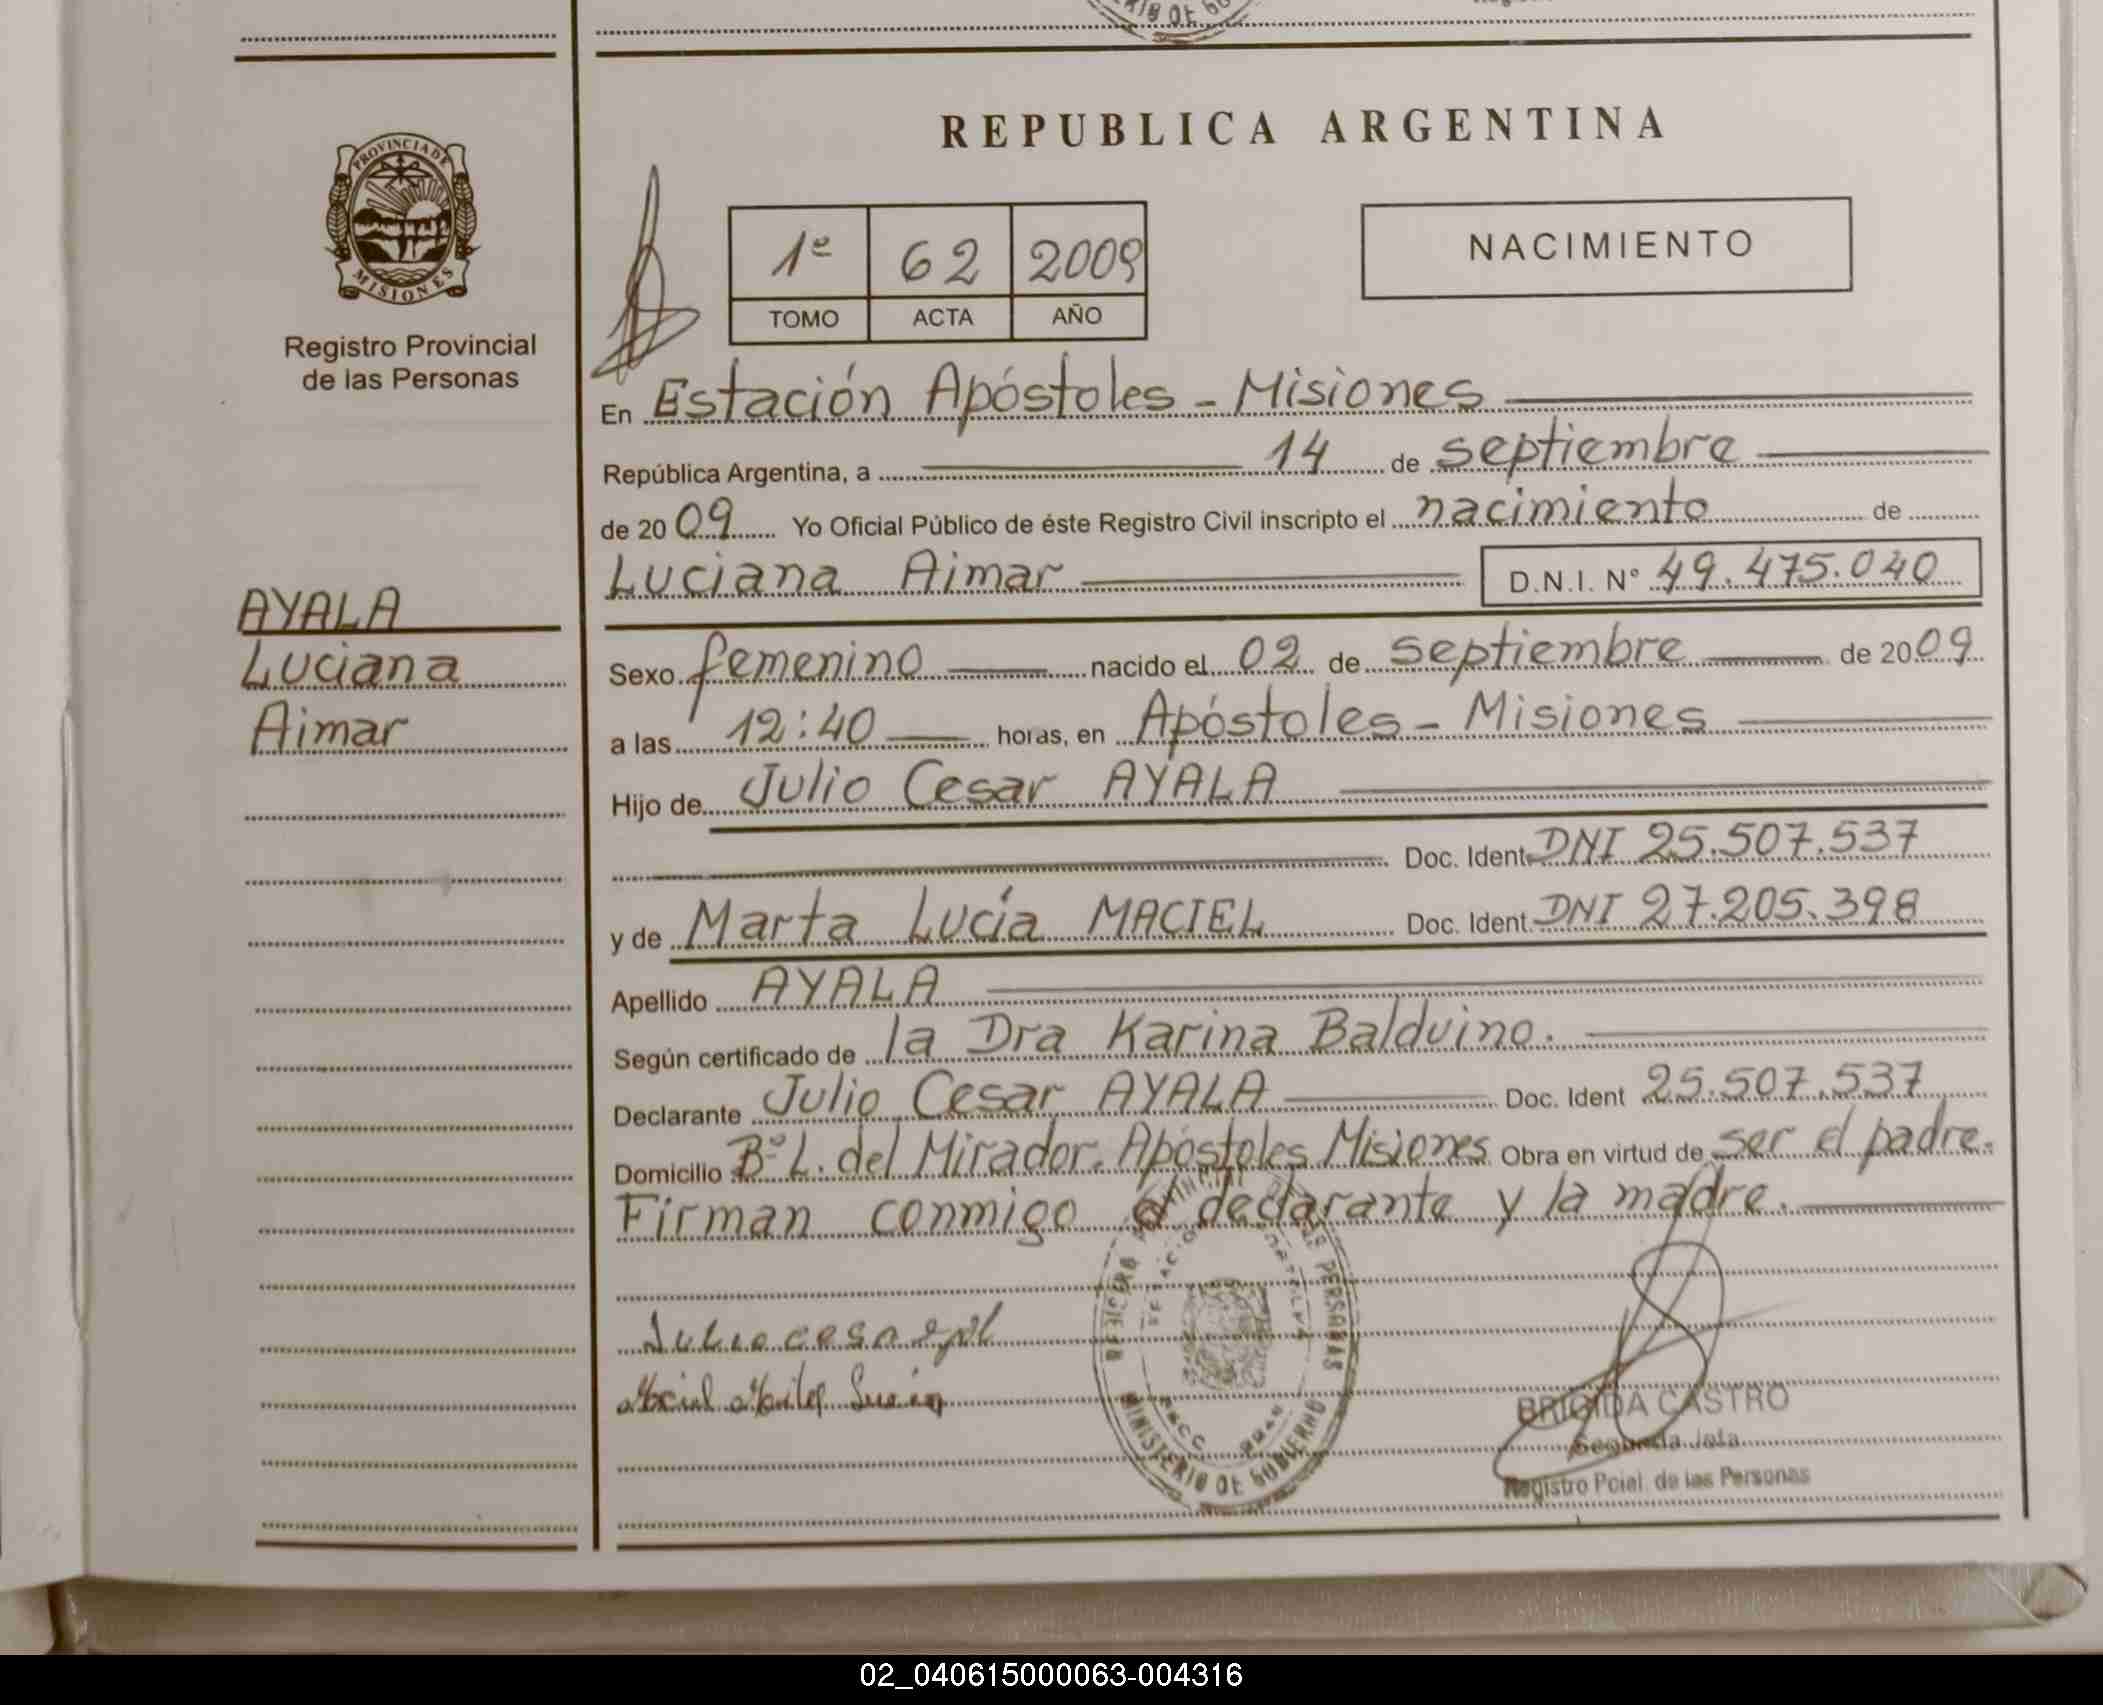 REPUBLICA ARGENTINA
PROVINCIA DE
MISIONES
Registro Provincial
de las Personas
1º 62 2009
TOMO ACTA AÑO
NACIMIENTO
En Estación Apóstoles - Misiones
República Argentina, a 14 de septiembre
de 2009 Yo Oficial Público de éste Registro Civil inscripto el nacimiento de
Luciana Aimar D.N.I. Nº 49.475.040
AYALA
Luciana
Aimar
Sexo femenino nacido el 02 de septiembre de 2009
a las 12:40 horas, en Apóstoles - Misiones
Hijo de Julio Cesar AYALA
Doc. Ident DNI 25.507.537
y de Marta Lucía MACIEL Doc. Ident. DNI 27.205.398
Apellido AYALA
Según certificado de la Dra Karina Balduino.
Declarante Julio Cesar AYALA Doc. Ident 25.507.537
Domicilio Bº L. del Mirador. Apóstoles Misiones Obra en virtud de ser el padre.
Firman conmigo el declarante y la madre.
MINISTERIO DE GOBIERNO
BRIGIDA CASTRO
Segunda Jefa
Registro Pcial. de las Personas
02_040615000063-004316